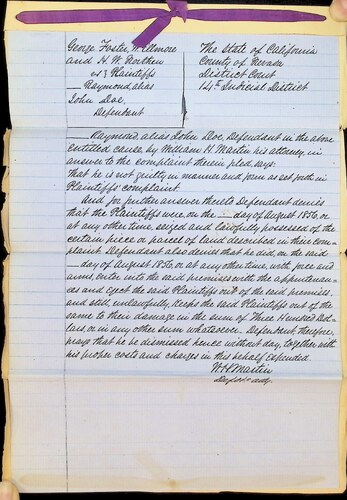 George Foster, W. Ellmore
and H. W.
vs } Plaintiffs
— Raymond, alias
John Doe,
Defendant
The State of California
County of Nevada
District Court
14th Judicial District
— Raymond, alias John Doe, Defendant in the above
entitled cause, by William H. Martin his attorney, in
answer to the complaint therein pled, says:
That he is not guilty in manner and form as set forth in
Plaintiffs' complaint.
And for further answer thereto Defendant denies
that the Plaintiffs were, on the — day of August 1856, or
at any other time, seized and lawfully possessed of the
certain piece or parcel of land described in their com-
plaint. Defendant also denies that he did, on the said
— day of August 1856, or at any other time, with force and
arms, enter into the said premises with the appurtenan-
ces and eject the said Plaintiffs out of the said premises,
and still, unlawfully, keeps the said Plaintiffs out of the
same to their damage in the sum of Three Hundred Dol-
lars or in any other sum whatsoever. Defendant, therefore,
prays that he be dismissed hence without day, together with
his proper costs and charges in this behalf expended.
W H Martin
Defts atty.